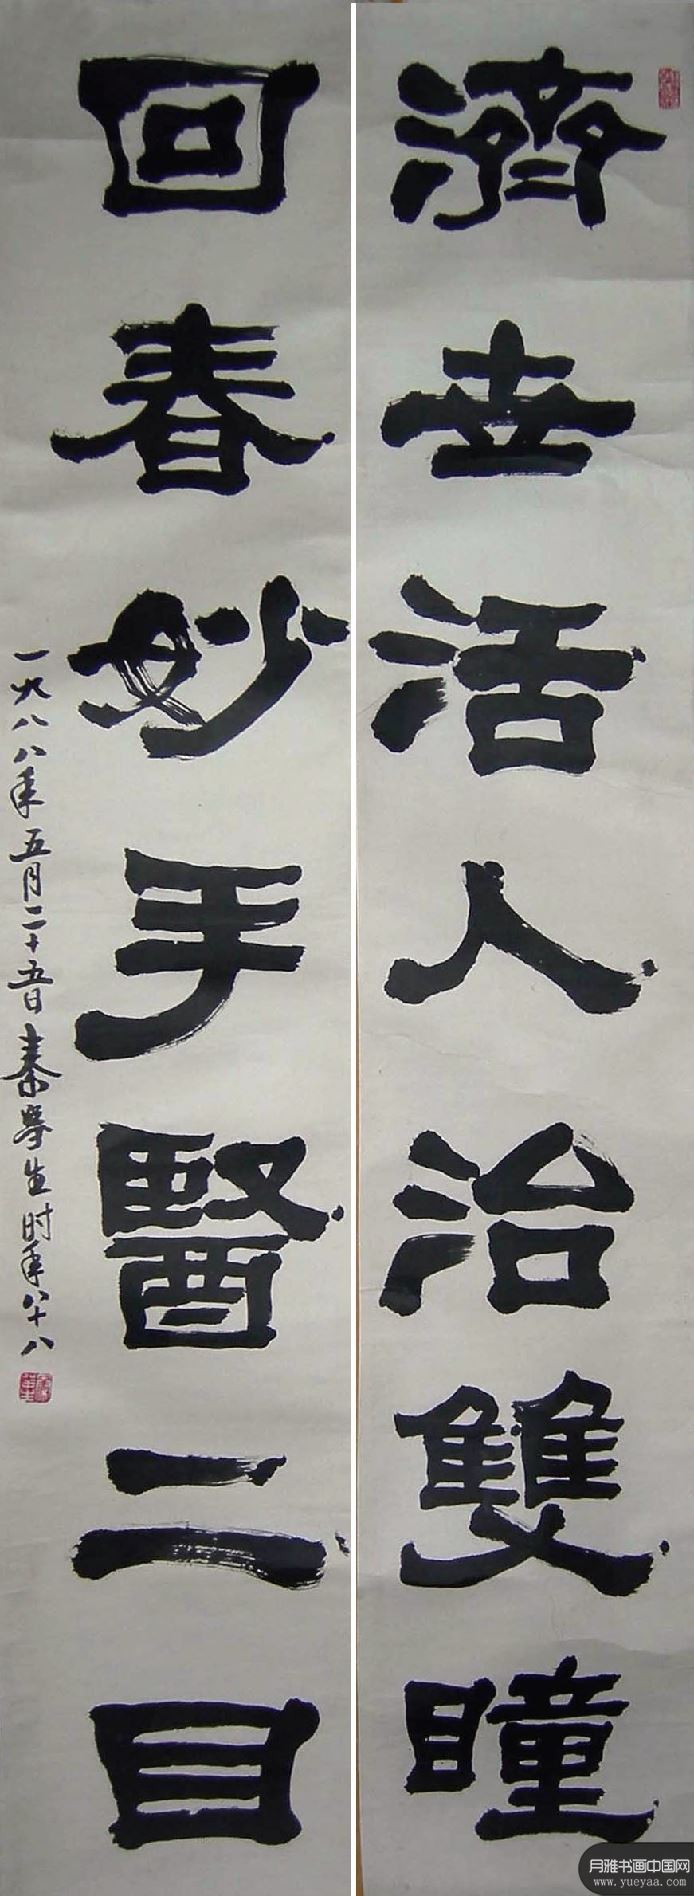 濟世活人治雙瞳
回春妙手醫二目
一九八八年五月二十五日秦咢生时年八十八
月雅书画中国网
www.yueyaa.com